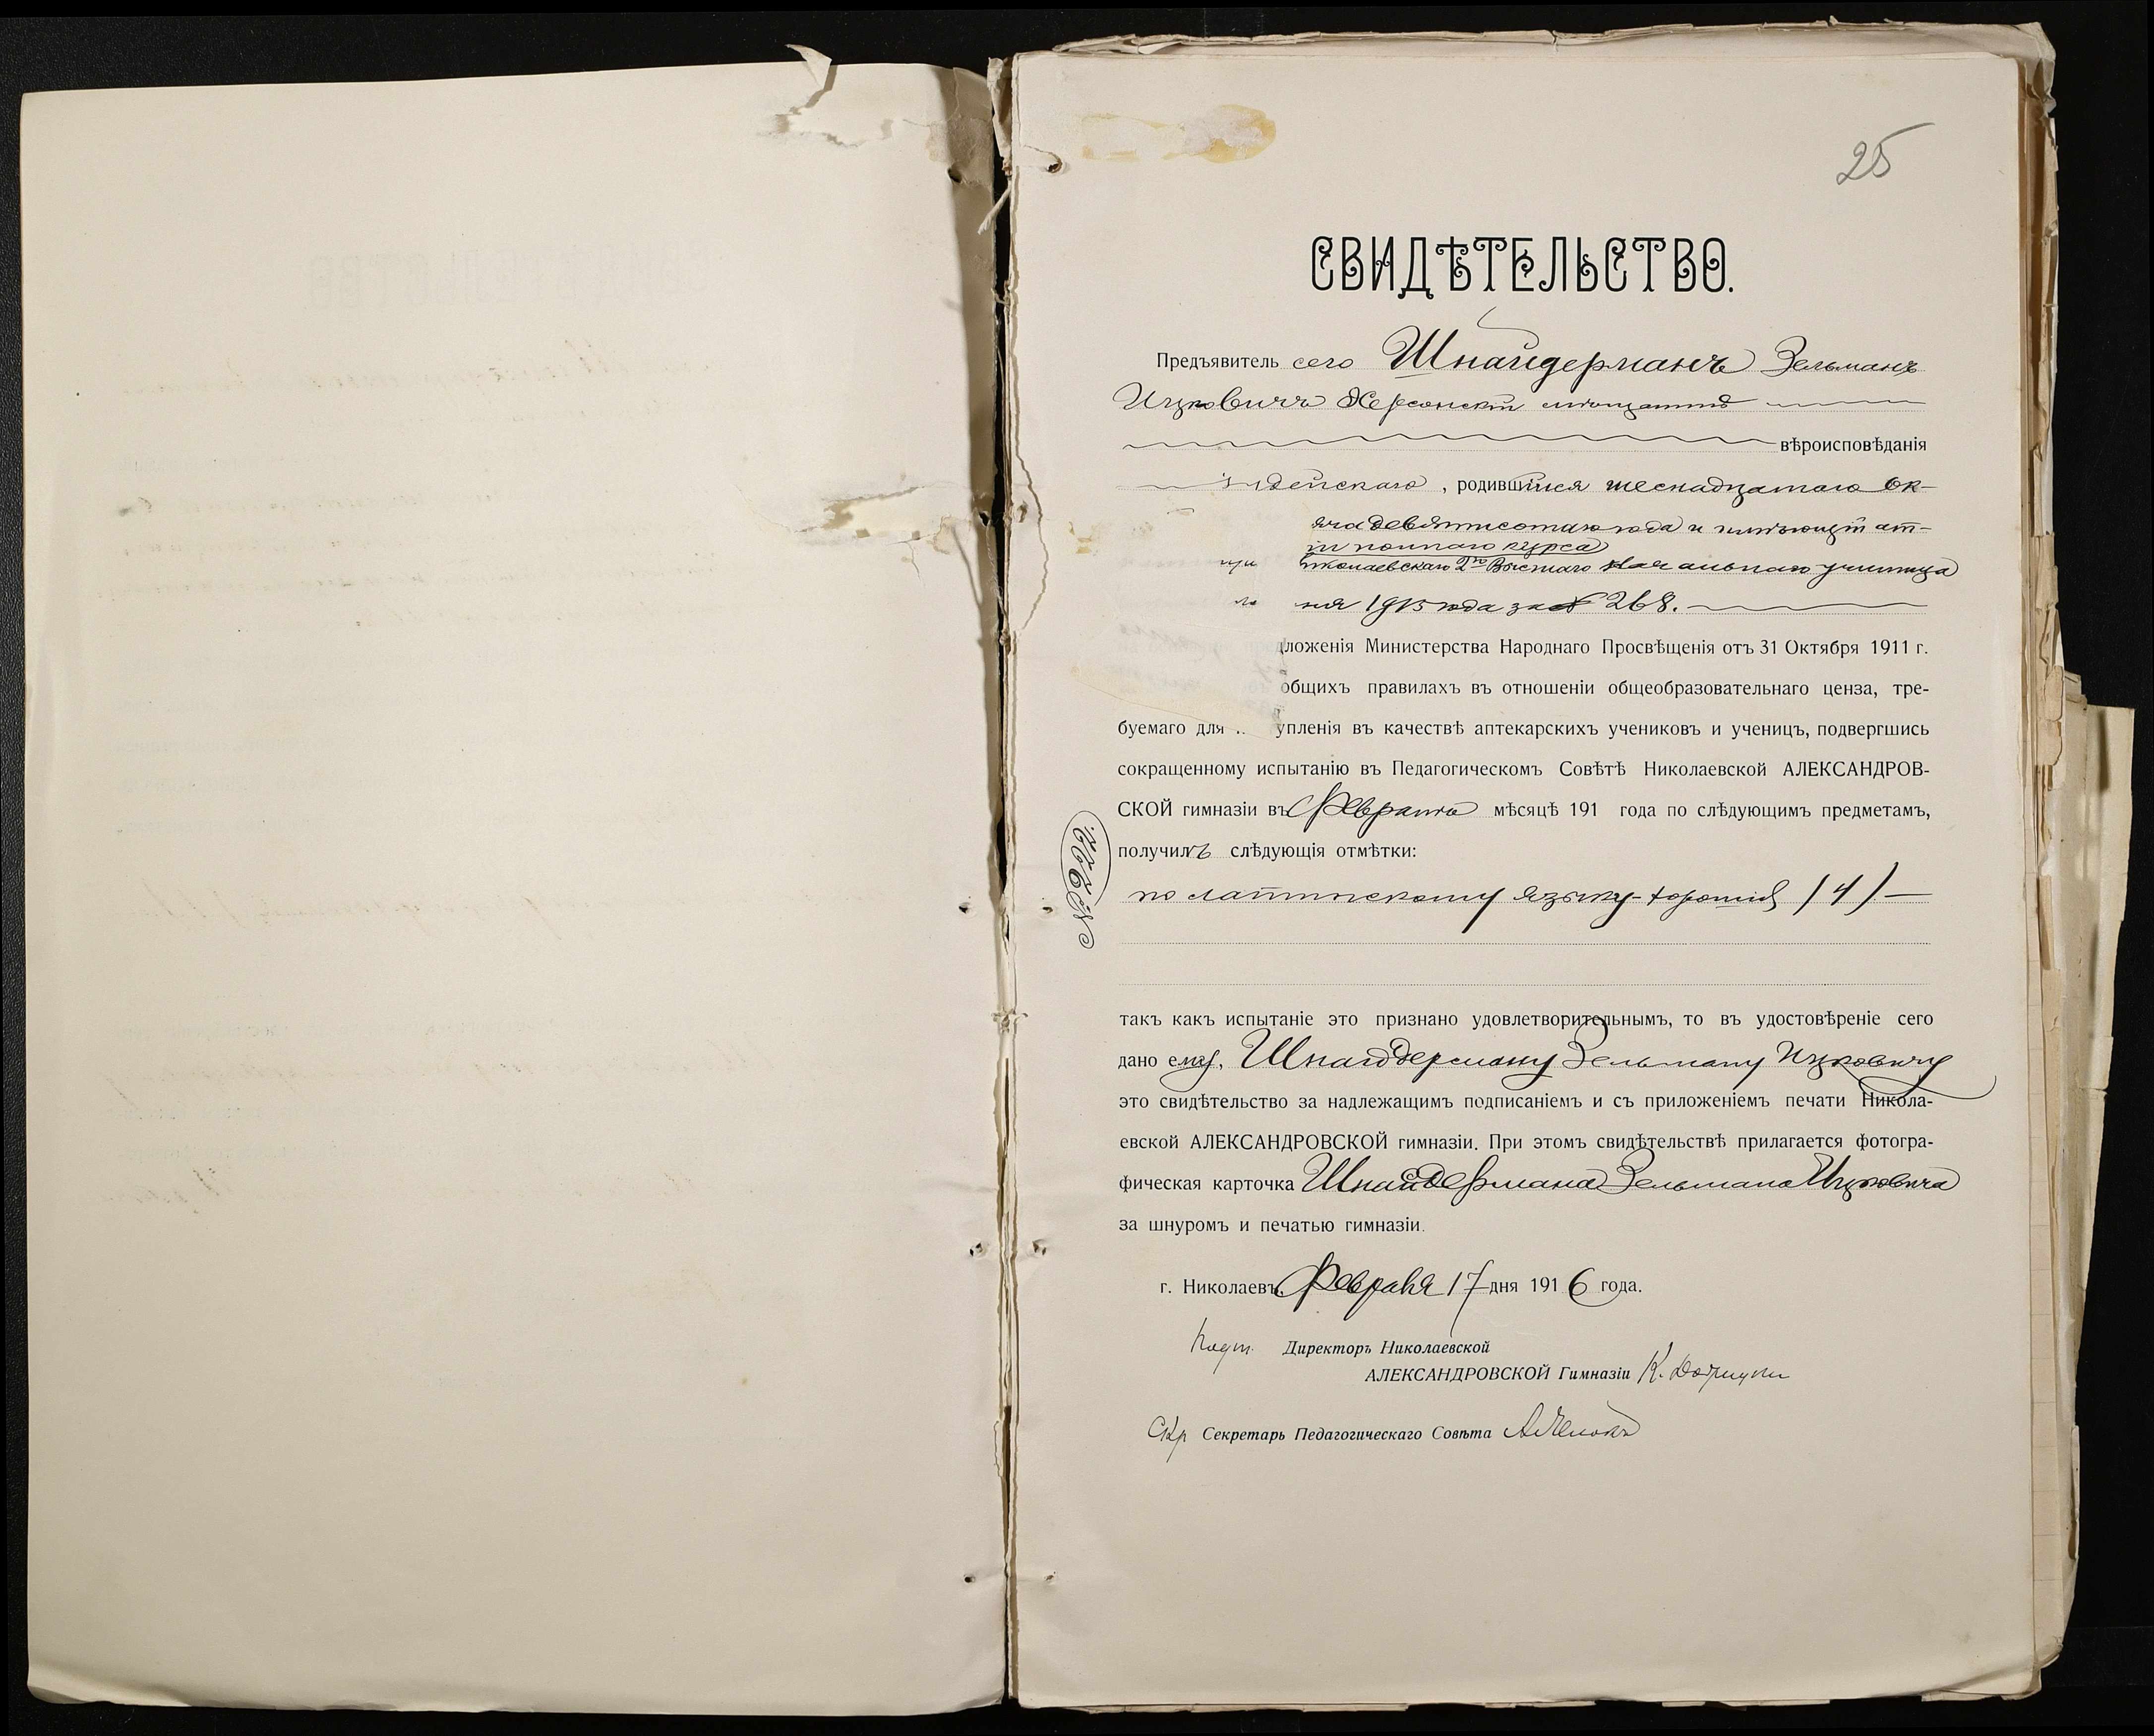 25
СВИДѢТЕЛЬСТВО.
Предъявитель сего Шнайдерманъ Зельманъ
Ицковичъ Херсонскій мѣщанинъ
вѣроисповѣданія
удейскаго, родившійся шеснадцатаго Ок-
яча девятисотаго года и имѣющій ат-
полнаго курса
при иколаевскаго 2го Высшаго Начальнаго училища
ня 1915 года за № 268.
дложенія Министерства Народнаго Просвѣщенія отъ 31 Октября 1911 г.
общихъ правилахъ въ отношеніи общеобразовательнаго ценза, тре-
буемаго для упленія въ качествѣ аптекарскихъ учениковъ и ученицъ, подвергшись
сокращенному испытанію въ Педагогическомъ Совѣтѣ Николаевской АЛЕКСАНДРОВ-
СКОЙ гимназіи въ Февралѣ мѣсяцѣ 191 года по слѣдующимъ предметамъ,
получилъ слѣдующія отмѣтки:
по латинскому языку - хорошія (4) —
такъ какъ испытаніе это признано удовлетворительнымъ, то въ удостовѣреніе сего
дано ему, Шнайдерману Зельману Ицковичу
это свидѣтельство за надлежащимъ подписаніемъ и съ приложеніемъ печати Никола-
евской АЛЕКСАНДРОВСКОЙ гимназіи. При этомъ свидѣтельствѣ прилагается фотогра-
фическая карточка Шнайдермана Зельмана Ицковича
за шнуромъ и печатью гимназіи.
г. Николаевъ, Февраля 17 дня 1916 года.
Подп. Директоръ Николаевской
АЛЕКСАНДРОВСКОЙ Гимназіи К.
Скр Секретарь Педагогическаго Совѣта